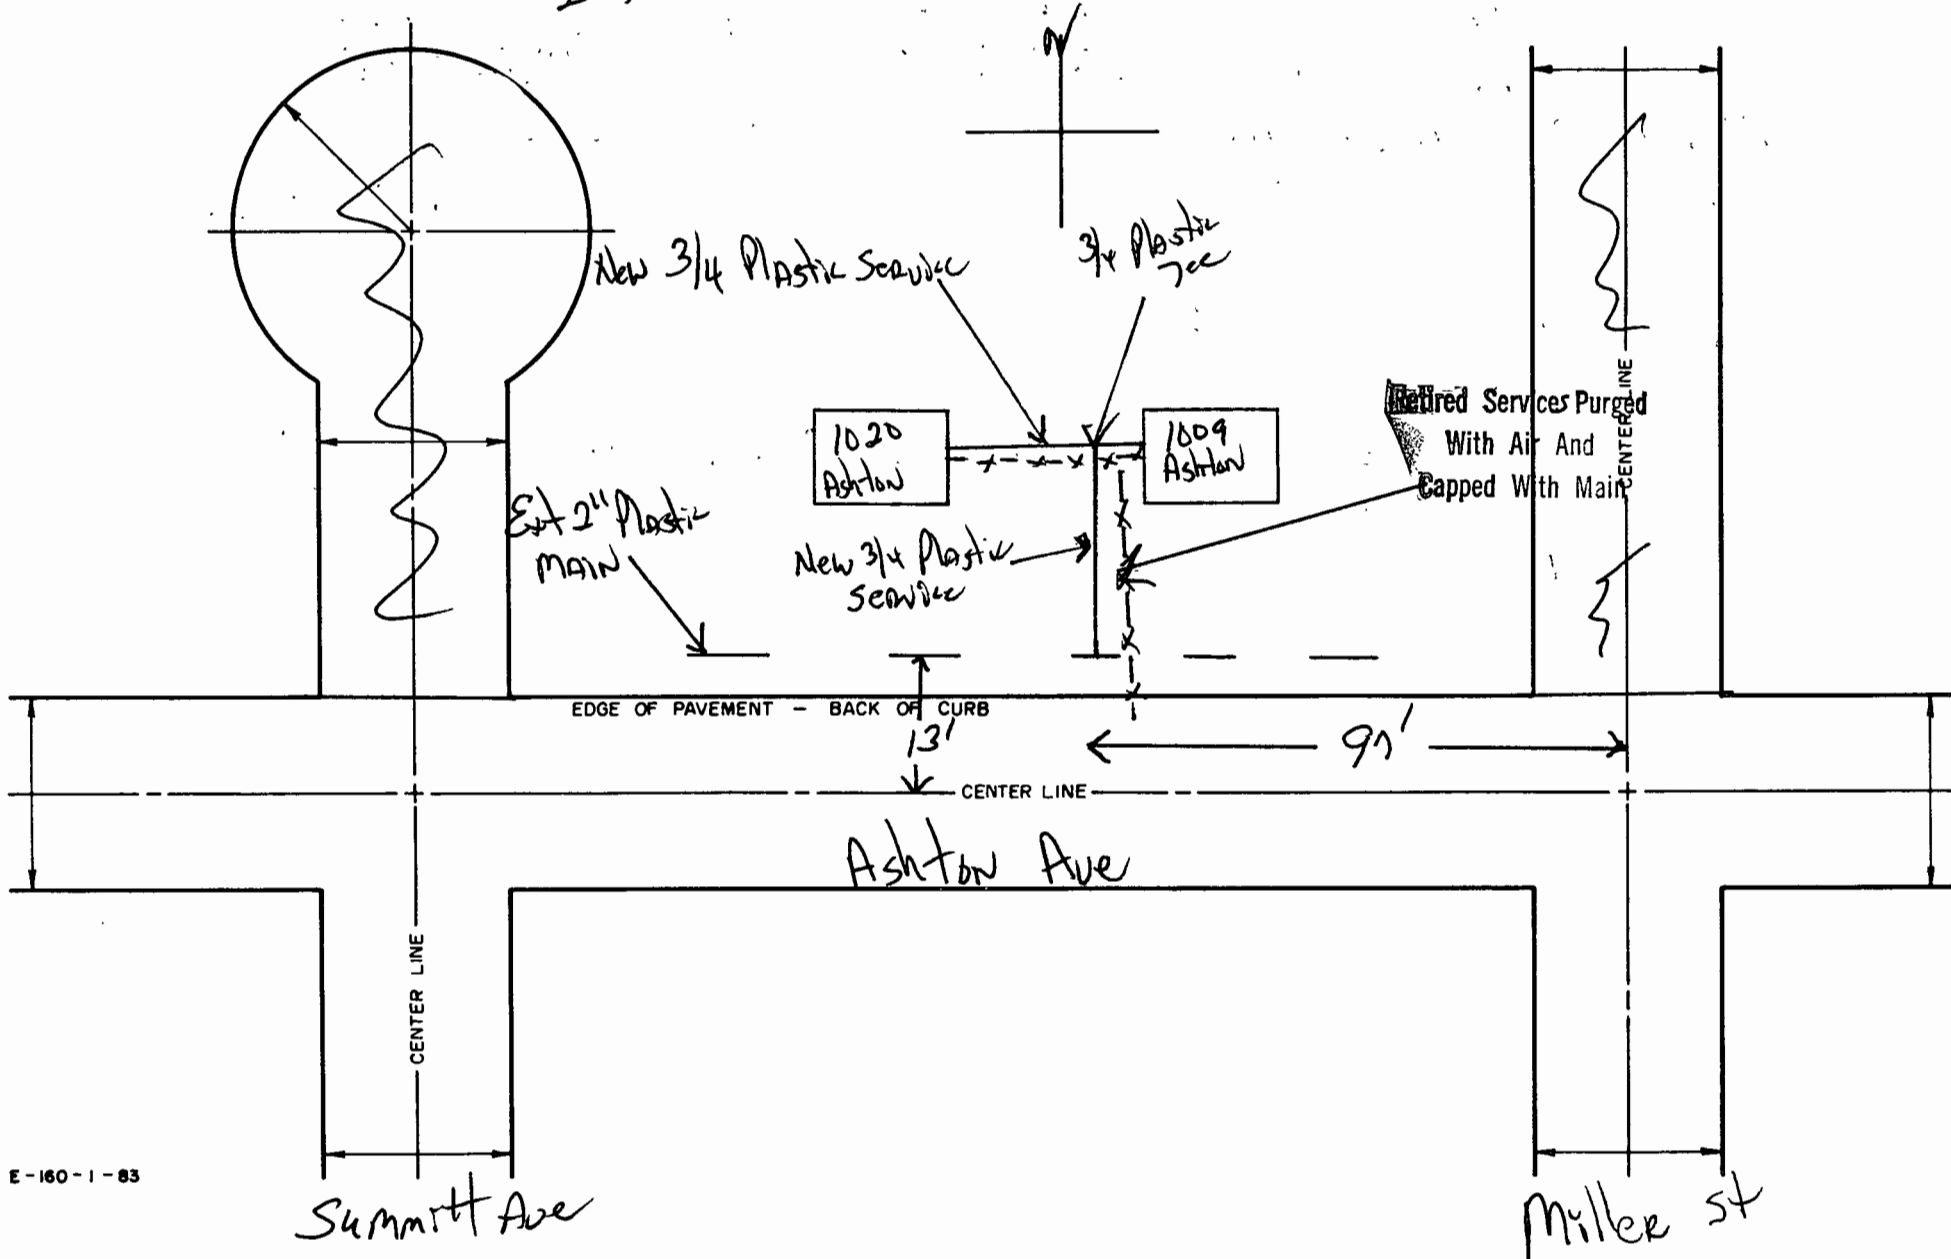 N
New 3/4 Plastic Service
3/4 Plastic
Tee
1020
Ashton
1009
Ashton
Retired Services Purged
With Air And
Capped With Main
CENTER LINE
Ext 2" Plastic
MAIN
New 3/4 Plastic
Service
EDGE OF PAVEMENT - BACK OF CURB
13'
CENTER LINE
Ashton Ave
CENTER LINE
E-160-1-83
Summitt Ave
Miller St